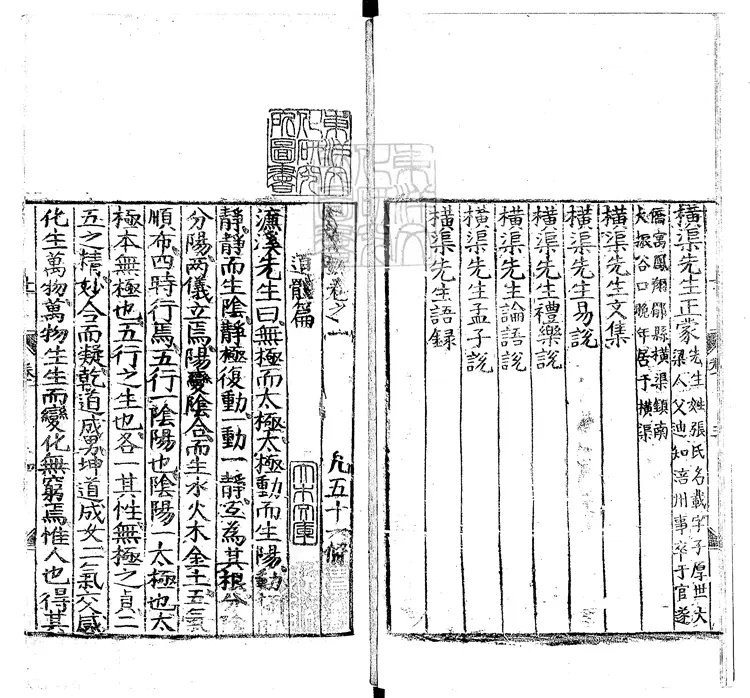 橫渠先生正蒙先生姓張氏名載字子厚世大
梁人父迪知涪州事卒于官遂
僑寓鳳翔郿縣橫渠鎮南
大振谷口晚年居于橫渠
橫渠先生文集
橫渠先生易說
橫渠先生禮樂說
橫渠先生論語說
橫渠先生孟子說
橫渠先生語録
卷之一
道體篇 凡五十一條
濂溪先生曰無極而太極太極動而生陽動
靜靜而生陰靜極復動動一靜互為其根分
分陽兩儀立焉陽變陰合而生水火木金土五氣
順布四時行焉五行一陰陽也陰陽一太極也太
極本無極也五行之生也各一其性無極之貞二
五之精妙合而凝乾道成男坤道成女二氣交感
化生萬物萬物生生而變化無窮焉惟人也得其
東洋文化研究所圖書
大木文庫